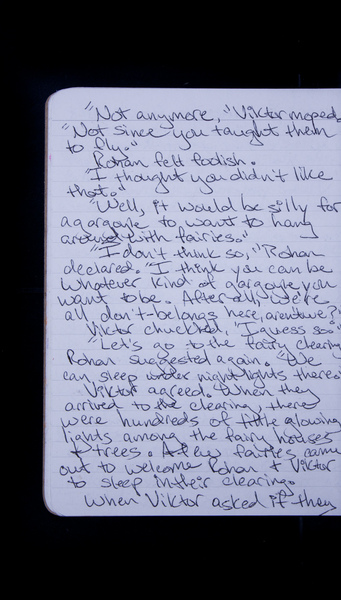 "Not anymore," Viktor moped.
"Not since you taught them
to fly."
Rohan felt foolish.
"I thought you didn't like
that."
"Well, it would be silly for
a gargoyle to want to hang
around with fairies."
"I don't think so," Rohan
declared. "I think you can be
whatever kind of gargoyle you
want to be. After all, we're
all don't-belongs here, aren't we?"
Viktor chuckled, "I guess so."
"Let's go to the fairy clearing,"
Rohan suggested again. "We
can sleep under night lights there."
Viktor agreed. When they
arrived to the clearing, there
were hundreds of little glowing
lights among the fairy houses
& trees. A few fairies came
out to welcome Rohan & Viktor
to sleep in their clearing.
When Viktor asked if they